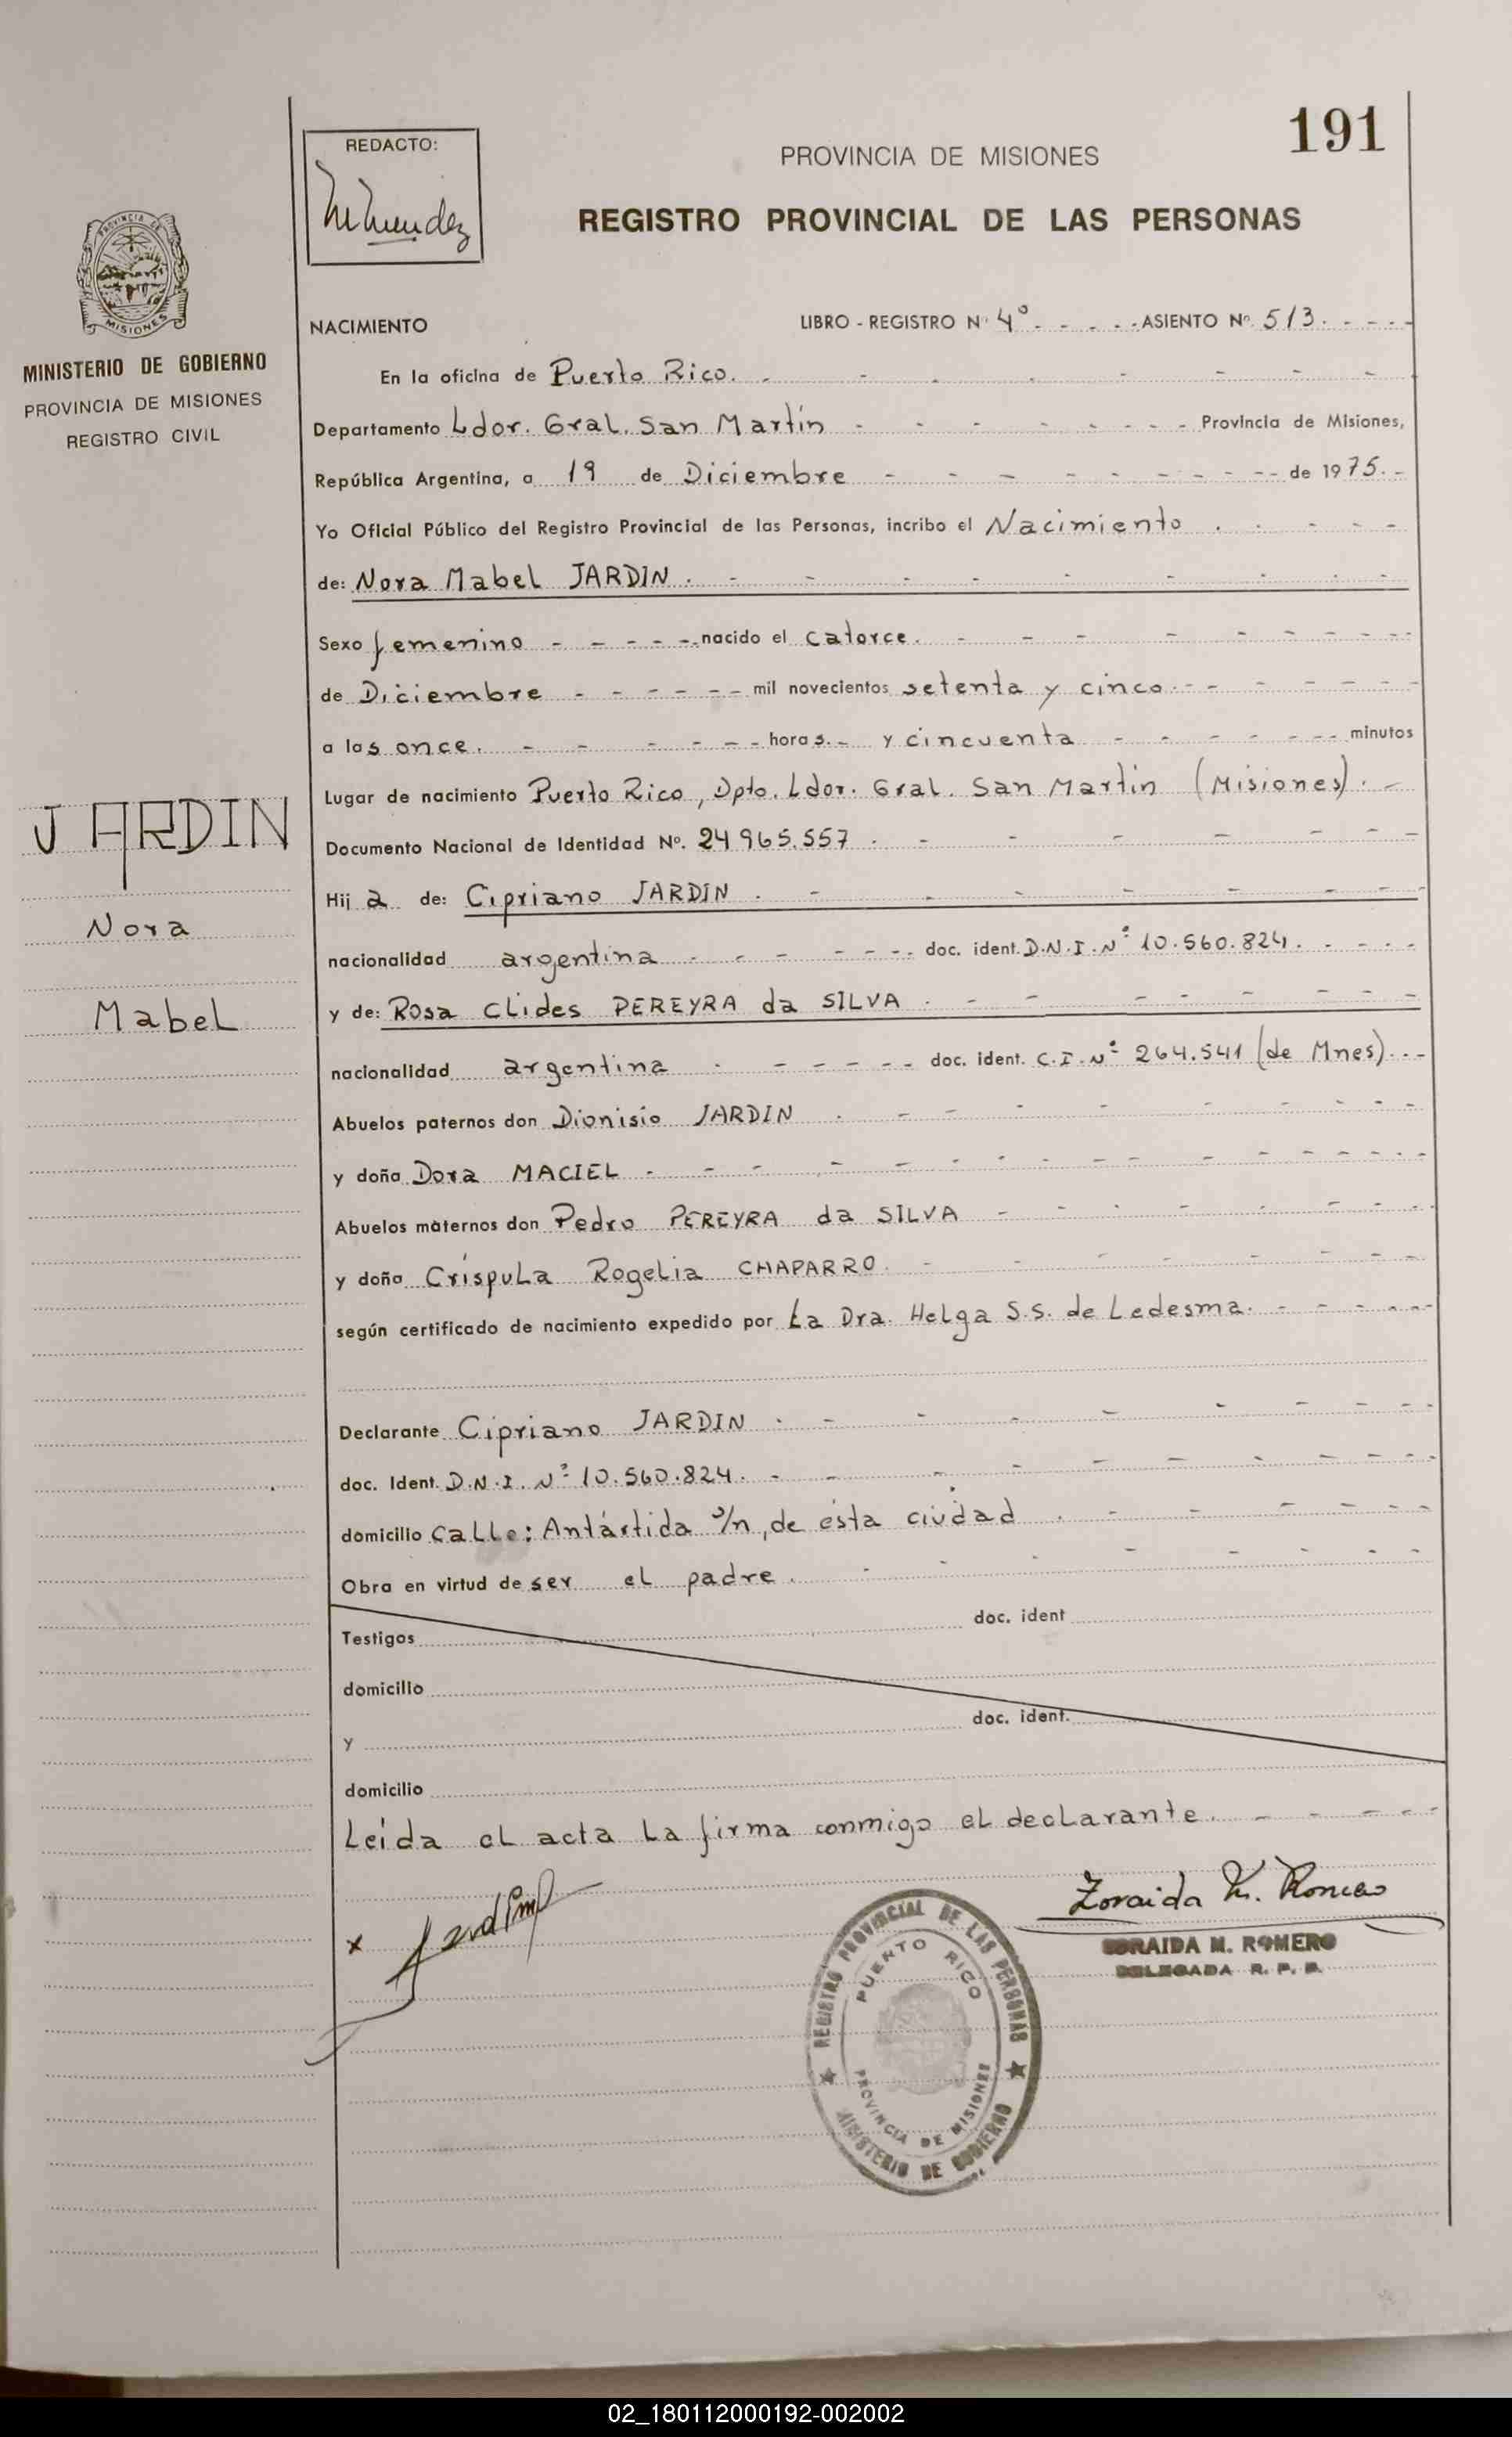 191
REDACTO:
PROVINCIA DE MISIONES
REGISTRO PROVINCIAL DE LAS PERSONAS
PROVINCIA DE
MISIONES
MINISTERIO DE GOBIERNO
PROVINCIA DE MISIONES
REGISTRO CIVIL
JARDIN
Nora
Mabel
NACIMIENTO LIBRO - REGISTRO Nº 4º - - - - ASIENTO Nº 513. - - - -
En la oficina de Puerto Rico. - - - - - - -
Departamento Ldor. Gral. San Martín - - - - - - - - Provincia de Misiones,
República Argentina, a 19 de Diciembre - - - - - - - - de 1975. -
Yo Oficial Público del Registro Provincial de las Personas, incribo el Nacimiento . - - - -
de: Nora Mabel JARDIN . - - - - - - - - -
Sexo femenino - - - - - nacido el catorce. - - - - - - - - -
de Diciembre - - - - - - mil novecientos setenta y cinco. - - - - - - - -
a las once. - - - - - - horas. - y cincuenta - - - - - - - minutos
Lugar de nacimiento Puerto Rico, Dpto. Ldor. Gral. San Martin (Misiones). -
Documento Nacional de Identidad Nº. 24 965.557 . - - - - - -
Hija de: Cipriano JARDIN . - - - - - - -
nacionalidad argentina - - - - - - doc. ident. D.N.I. Nº 10.560.824. - - - -
y de: Rosa Clides PEREYRA da SILVA . - - - - - - - -
nacionalidad argentina . - - - - - doc. ident. C.I. Nº 264.541 (de Mnes). - -
Abuelos paternos don Dionisio JARDIN . - - - - - - - -
y doña Dora MACIEL - - - - - - - - - - - - -
Abuelos maternos don Pedro PEREYRA da SILVA - - - - - - - -
y doña Críspula Rogelia CHAPARRO. - - - - - - -
según certificado de nacimiento expedido por La Dra. Helga S.S. de Ledesma. - - - - -
Declarante Cipriano JARDIN . - - - - - - - -
doc. Ident. D.N.I. Nº 10.560.824. - - - - - - - - -
domicilio calle: Antártida s/n, de ésta ciudad . - - - - - -
Obra en virtud de ser el padre. - - - - - - - -
Testigos doc. ident
domicilio
y doc. ident.
domicilio
Leída el acta la firma conmigo el declarante. - - - - -
x Jardim
Zoraida M. Romero
ZORAIDA M. ROMERO
DELEGADA R. P. P.
REGISTRO PROVINCIAL DE LAS PERSONAS
PUERTO RICO
PROVINCIA DE MISIONES
MINISTERIO DE GOBIERNO
02_180112000192-002002